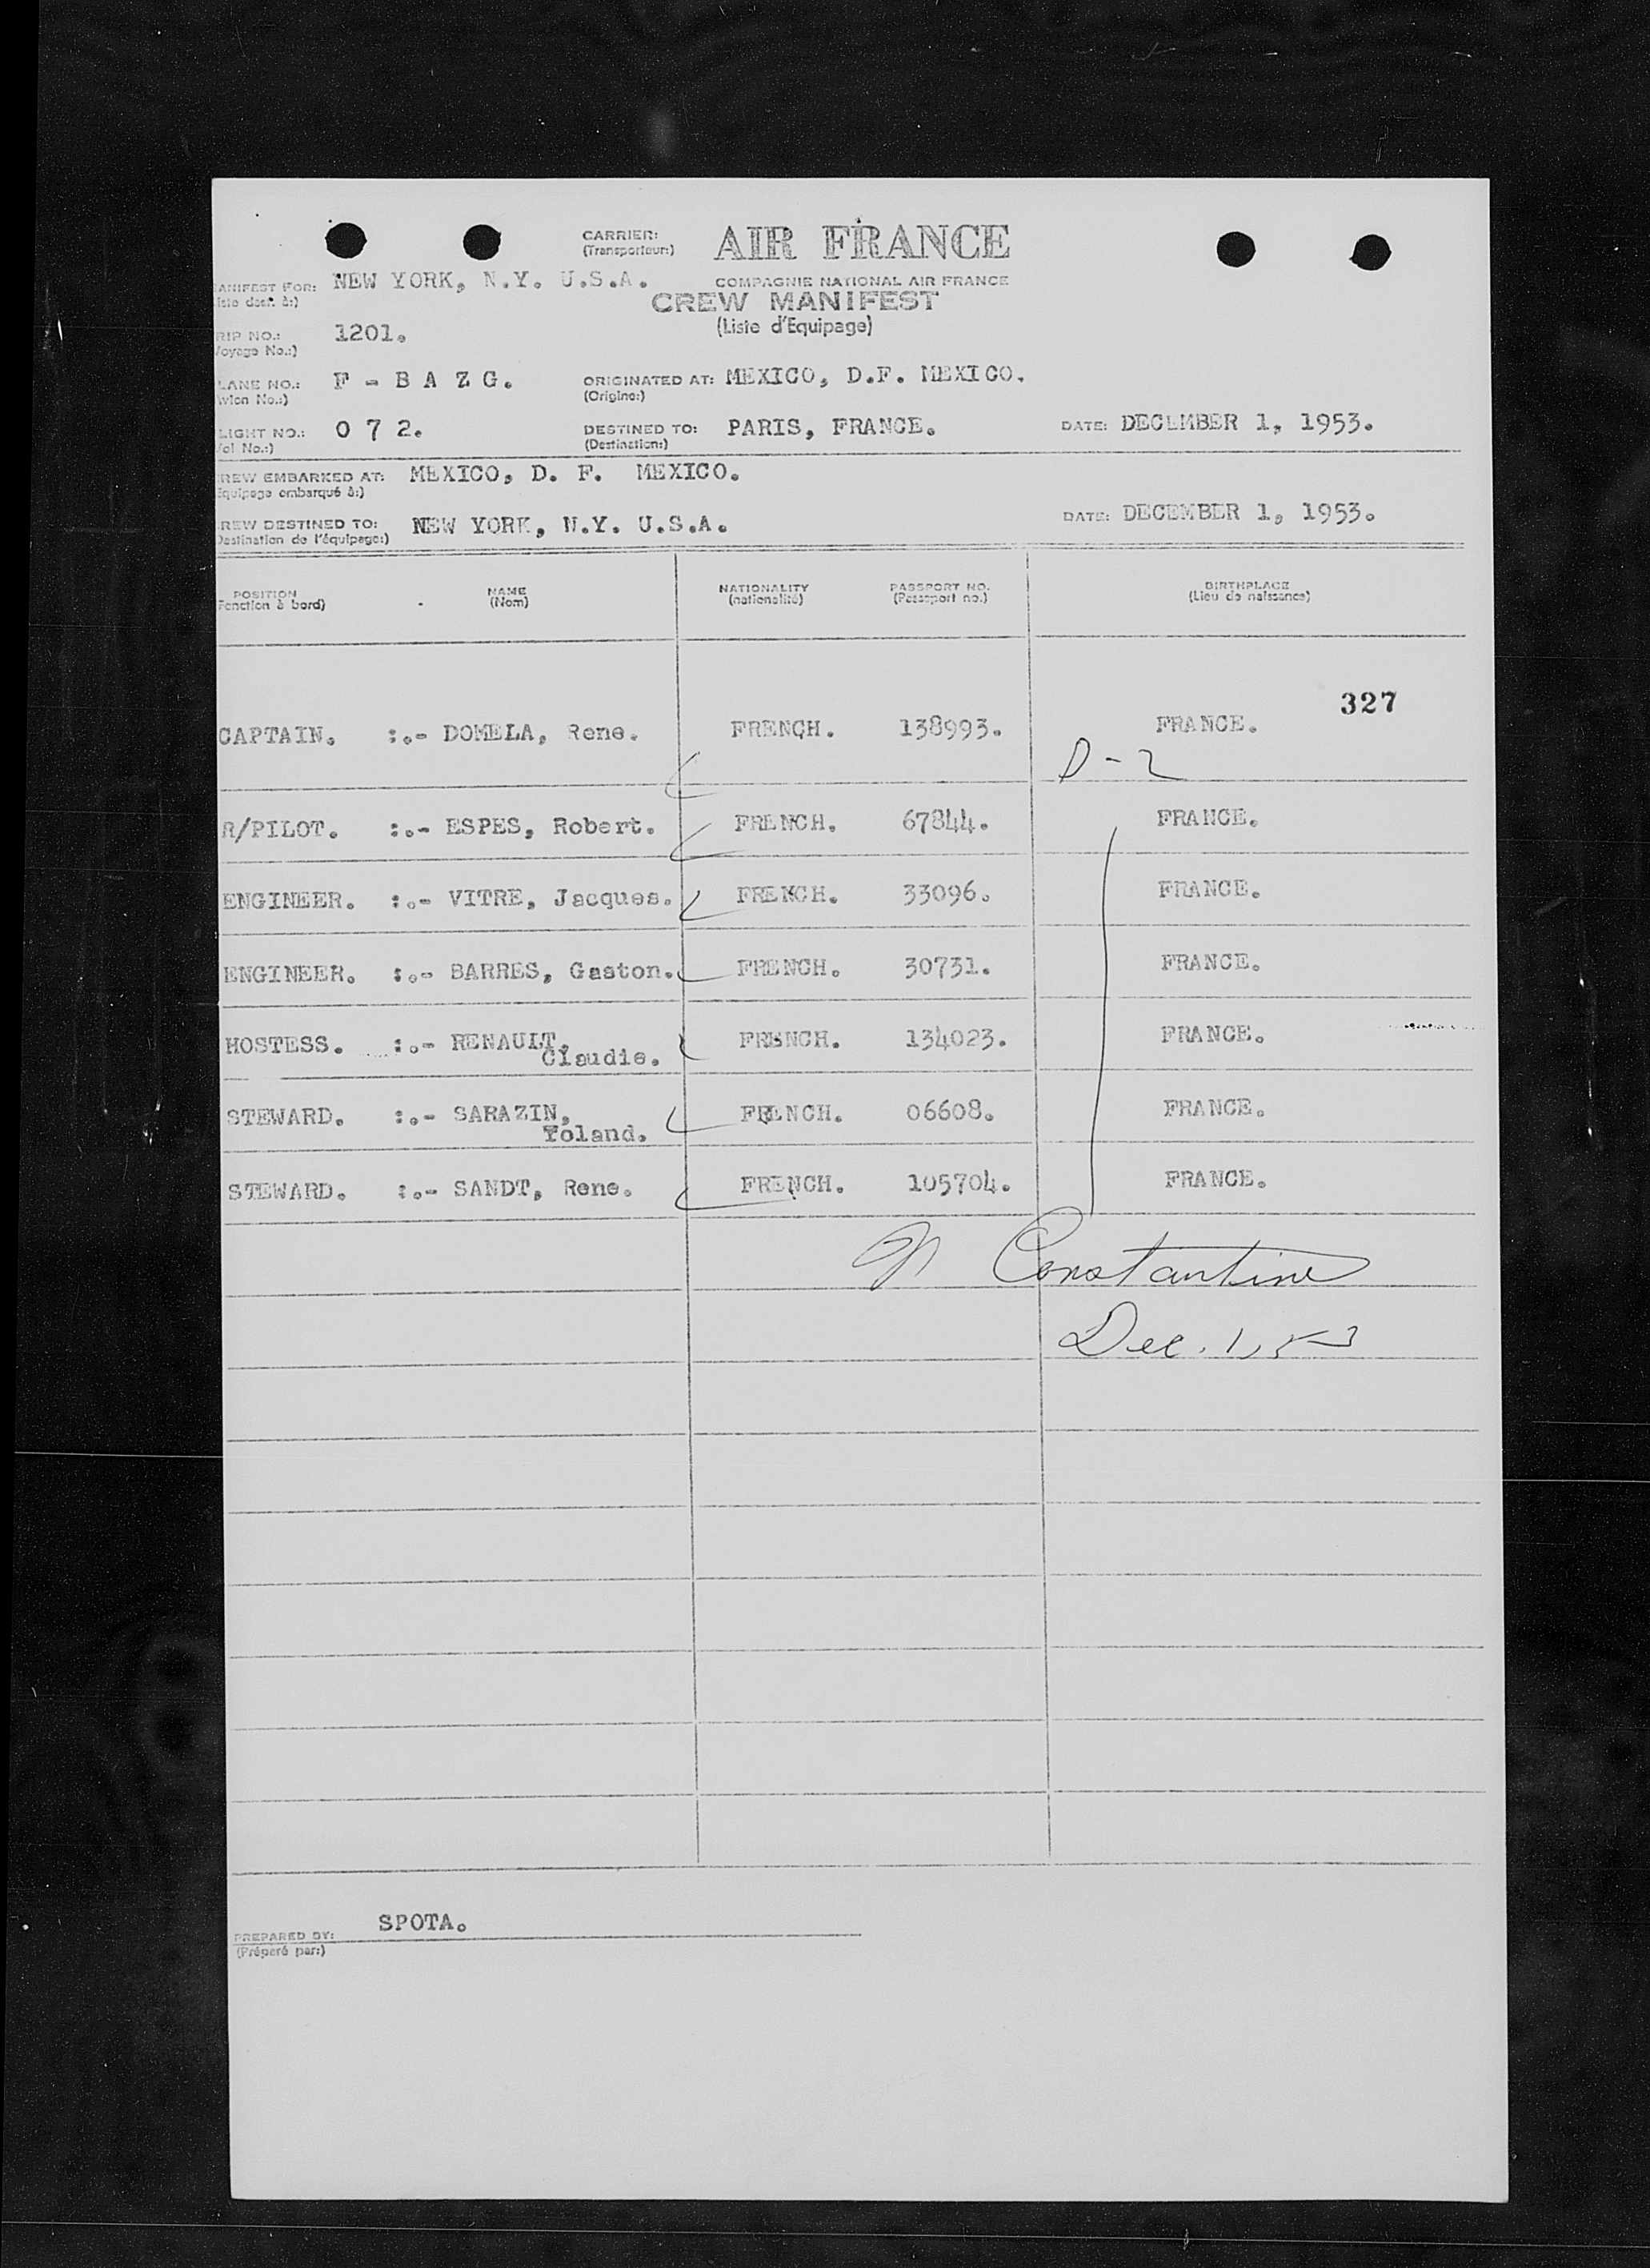 CARRIER: AIR FRANCE
(Transporteur:)
ANIFEST FOR: NEW YORK, N.Y. U.S.A. COMPAGNIE NATIONAL AIR FRANCE
iste dest. à:) CREW MANIFEST
(Liste d'Equipage)
RIP NO.: 1201.
oyage No.:)
LANE NO.: F - B A Z G. ORIGINATED AT: MEXICO, D.F. MEXICO.
vion No.:) (Origine:)
LIGHT NO.: 0 7 2. DESTINED TO: PARIS, FRANCE. DATE: DECEMBER 1, 1953.
ol No.:) (Destination:)
REW EMBARKED AT: MEXICO, D. F. MEXICO.
quipage embarqué à:)
REW DESTINED TO: NEW YORK, N.Y. U.S.A. DATE: DECEMBER 1, 1953.
Destination de l'équipage:)
POSITION NAME NATIONALITY PASSPORT NO. BIRTHPLACE
Fonction à bord) (Nom) (nationalité) (Passeport no.) (Lieu de naissance)
327
CAPTAIN. :.- DOMELA, Rene. FRENCH. 138993. FRANCE.
D-2
R/PILOT. :.- ESPES, Robert. FRENCH. 67844. FRANCE.
ENGINEER. :.- VITRE, Jacques. FRENCH. 33096. FRANCE.
ENGINEER. :.- BARRES, Gaston. FRENCH. 30731. FRANCE.
HOSTESS. :.- RENAULT, FRENCH. 134023. FRANCE.
Claudie.
STEWARD. :.- SARAZIN, FRENCH. 06608. FRANCE.
Yoland.
STEWARD. :.- SANDT, Rene. FRENCH. 105704. FRANCE.
Constantine
Dec. 1, 53
SPOTA.
PREPARED BY:
(Préparé par:)